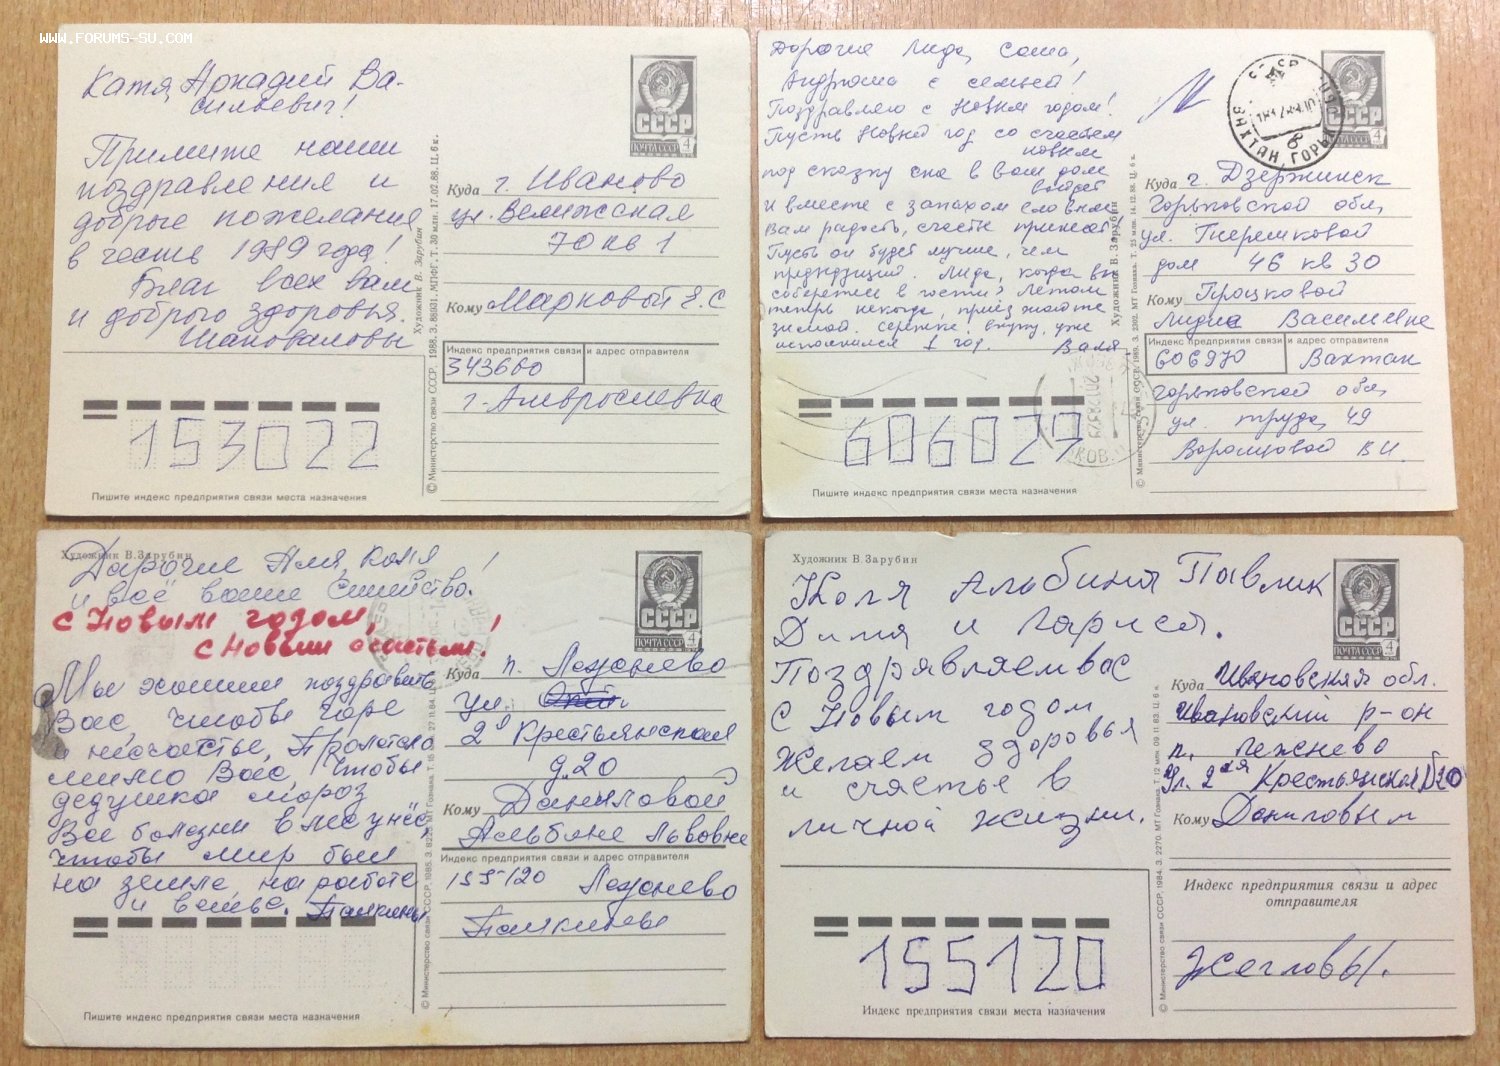 WWW.FORUMS-SU.COM
Катя, Аркадий Ва-
сильевич!
Примите наши
поздравления и
добрые пожелания
в честь 1989 года!
Благ всех вам
и доброго здоровья.
Шаповаловы
Художник В. Зарубин
© Министерство связи СССР, 1988. З. 86931. МПФГ. Т. 30 млн. 17.02.88. Ц. 6 к.
СССР
ПОЧТА СССР 4
Куда г. Иваново
ул. Велижская
70 кв 1
Кому Марковой Е. С
Индекс предприятия связи и адрес отправителя
343660
г. Амвросиевка
153022
Пишите индекс предприятия связи места назначения
Дорогие Лида, Саша,
Андрюша с семьей!
Поздравляю с Новым годом!
Пусть Новый год со счастьем
новым
под сказку сна в ваш дом
войдет
и вместе с запахом еловым
вам радость, счастье принесет
Пусть он будет лучше, чем
предыдущий. Лида, когда вы
соберетесь в гости? Летом
теперь некогда, приезжайте
зимой. Сережке, внуку, уже
исполнился 1 год. Валя.
Художник В. Зарубин
© Министерство связи СССР, 1989. З. 2302. МТ Гознака. Т. 25 млн. 14.12.88. Ц. 6 к.
СССР
ВАХТАН ГОРЬК
СССР
ПОЧТА СССР 4
Куда г. Дзержинск
Горьковской обл,
ул. Терешковой
дом 46 кв 30
Кому Троцковой
Лидии Васильевне
Индекс предприятия связи и адрес отправителя
606970 Вахтан
Горьковской обл,
ул. труда, 49
Воронцовой В И.
606027
Пишите индекс предприятия связи места назначения
Художник В. Зарубин
Дорогие Аля, Коля
и всё ваше семейство!
с Новым годом,
с Новым счастьем!
Мы хотим поздравить
Вас, чтобы горе
и несчастье, Пролетело
мимо Вас, чтобы
дедушка мороз
Все болезни в лес унёс,
чтобы мир был
на земле, на работе
и в семье. Палкины
СССР
ПОЧТА СССР 4
Куда п. Лежнево
ул.
2я Крестьянская
д. 20
Кому Даниловой
Альбине Львовне
Индекс предприятия связи и адрес отправителя
155120 Лежнево
Палкины
Пишите индекс предприятия связи места назначения
Художник В. Зарубин
Коля Альбина Павлик
Дима и Лариса.
Поздравляем вас
с Новым годом
Желаем здоровья
и счастье в
личной жизни.
© Министерство связи СССР, 1984. З. 2270. МТ Гознака. Т. 12 млн. 09.11.83. Ц. 6 к.
СССР
ПОЧТА СССР 4
Куда Ивановская обл.
Ивановский р-он
п. Лежнево
ул. 2ая Крестьянская д 20
Кому Даниловым
Индекс предприятия связи и адрес
отправителя
Жегловы.
155120
Пишите индекс предприятия связи места назначения